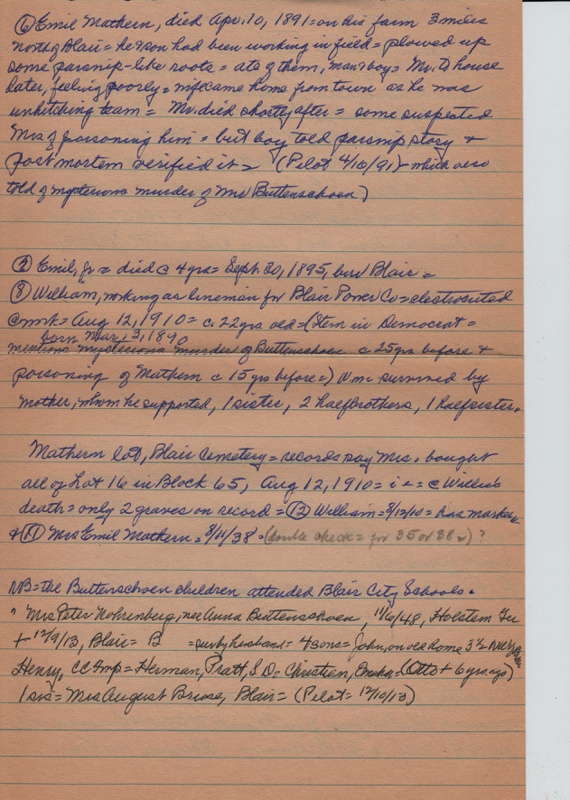 ① Emil Mathern, died Apr. 10, 1891 = on his farm 3 miles
north of Blair = he & son had been working in field = plowed up
some parsnip-like roots = ate of them, man & boy = Mr. to house
later, feeling poorly = wife came home from town as he was
unhitching team = Mr. died shortly after = some suspected
Mrs of poisoning him = but boy told parsnip story &
post mortem verified it = (Pilot 4/10/91) - which also
told of mysterious murder of Mr Buttenschoen)
② Emil, Jr = died @ 4 yrs = Sept. 20, 1895, bur Blair =
③ William, working as lineman for Blair Power Co = electrocuted
@ work = Aug 12, 1910 = c. 22 yrs old = (Item in Democrat =
born Mar. 13, 1890
mentions mysterious murder of Buttenschoen c 25 yrs before &
poisoning of Mathern c 15 yrs before =) Wm. survived by
mother, whom he supported, 1 sister, 2 half brothers, 1 half sister.
Mathern lot, Blair Cemetery = records say Mrs. bought
all of Lot 16 in Block 65, Aug 12, 1910 = i e = @ Willie's
death = only 2 graves on record = ⑫ William = 8/12/10 = has marker
& ⑪ Mrs Emil Mathern = 8/11/38 = (double check = for 35 or 38 =) ?
NB = the Buttenschoen children attended Blair City Schools.
" Mrs Peter Nohrenberg, nee Anna Buttenschoen, 11/6/48, Holstein Ger
+ 12/9/13, Blair = B = sur by husband = 4 sons = John, on old home 3½
Henry, = Herman, Pratt, S D = Christian, Omaha = (Otto + 6 yrs ago)
1 sis = Mrs August Bruse, Blair = (Pilot = 12/10/13)